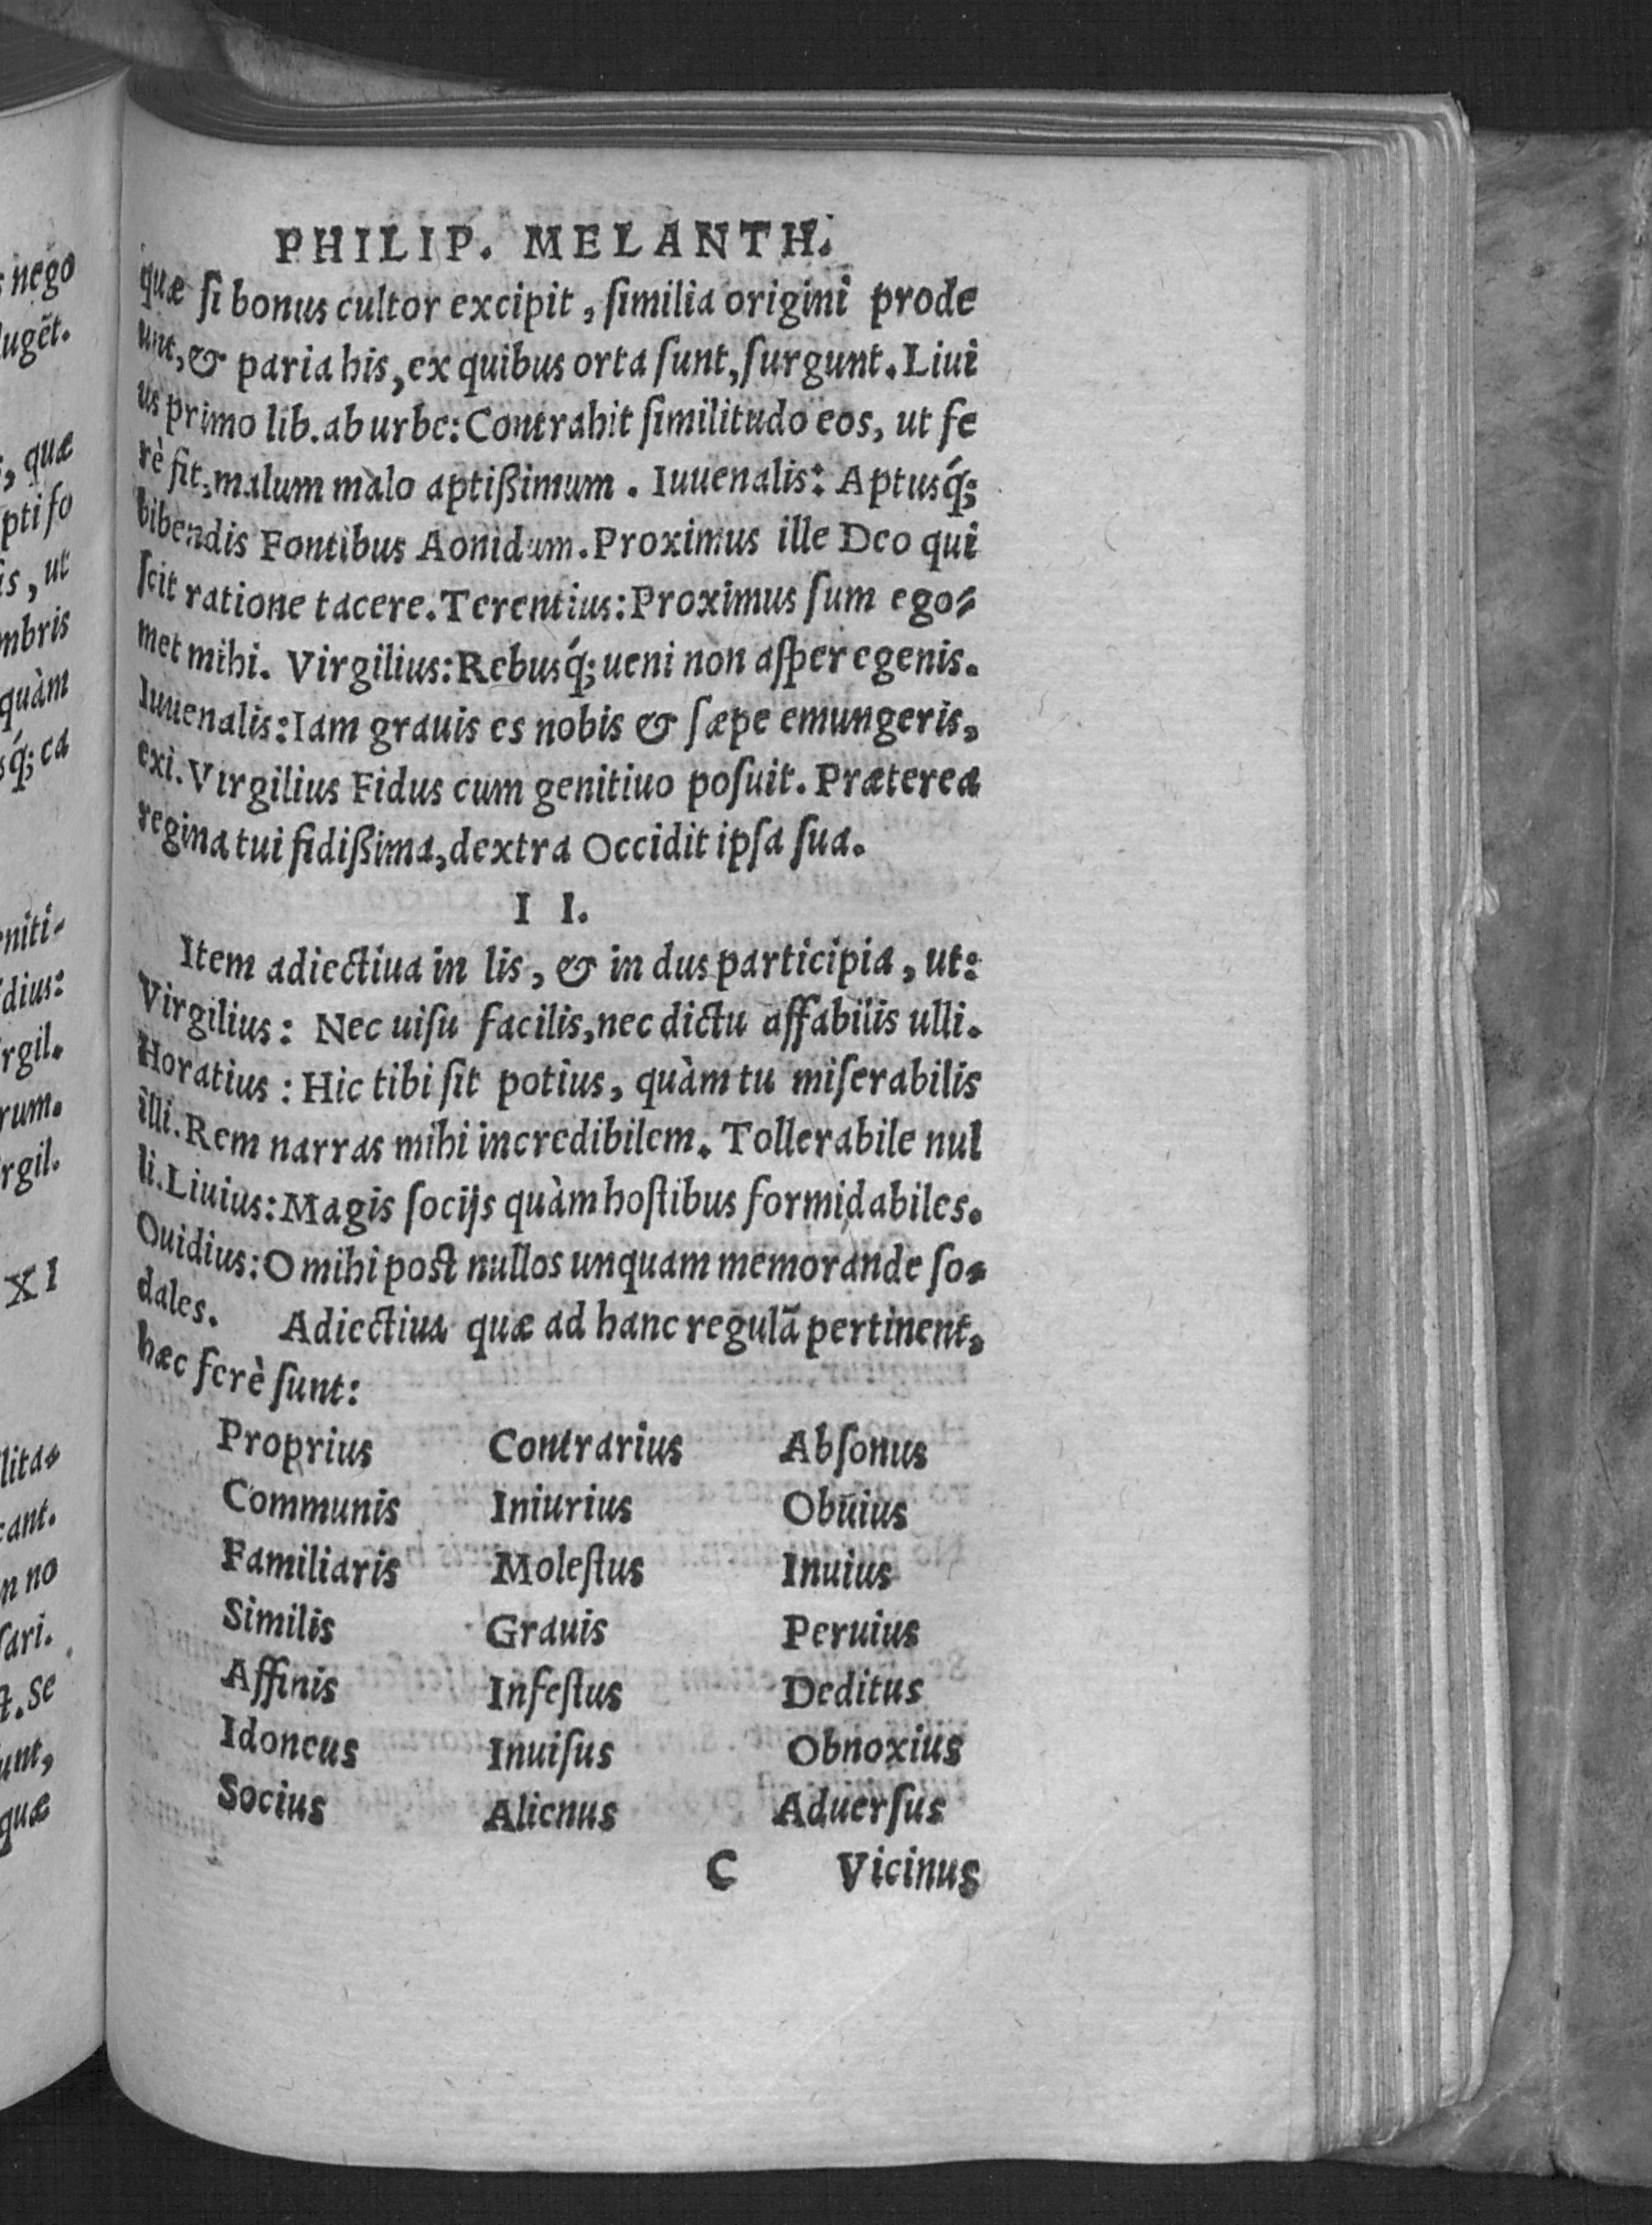 PHILIP. MELANTH.
quæ ſi bonus cultor excipit, ſimilia origini prode
unt, & paria his, ex quibus orta ſunt, ſurgunt. Liui
us primo lib. ab urbe: Contrahit ſimilitudo eos, ut fe
rè fit, malum malo aptißimum. Iuuenalis: Aptusq́;
bibendis Fontibus Aonidum. Proximus ille Deo qui
ſcit ratione tacere. Terentius: Proximus ſum ego-
met mihi. Virgilius: Rebusq́; ueni non aſper egenis.
Iuuenalis: Iam grauis es nobis & ſæpe emungeris,
exi. Virgilius Fidus cum genitiuo poſuit. Præterea
regina tui fidißima, dextra Occidit ipſa ſua.
I I.
Item adiectiua in lis, & in dus participia, ut:
Virgilius: Nec uiſu facilis, nec dictu affabilis ulli.
Horatius: Hic tibi ſit potius, quàm tu miſerabilis
illi. Rem narras mihi incredibilem. Tollerabile nul
li. Liuius: Magis ſocijs quàm hoſtibus formidabiles.
Ouidius: O mihi post nullos unquam memorande ſo-
dales. Adiectiua quæ ad hanc regulā pertinent,
hæc ferè ſunt:
Proprius Contrarius Abſonus
Communis Iniurius Obuius
Familiaris Moleſtus Inuius
Similis Grauis Peruius
Affinis Infeſtus Deditus
Idoneus Inuiſus Obnoxius
Socius Alienus Aduerſus
C Vicinus
nego
lugēt.
, quæ
pti ſo
is, ut
mbris
quàm
sq́; ca
eniti-
dius:
irgil.
rum.
irgil.
XI
lita-
cant.
n no
ſari.
t. Se
unt,
quæ